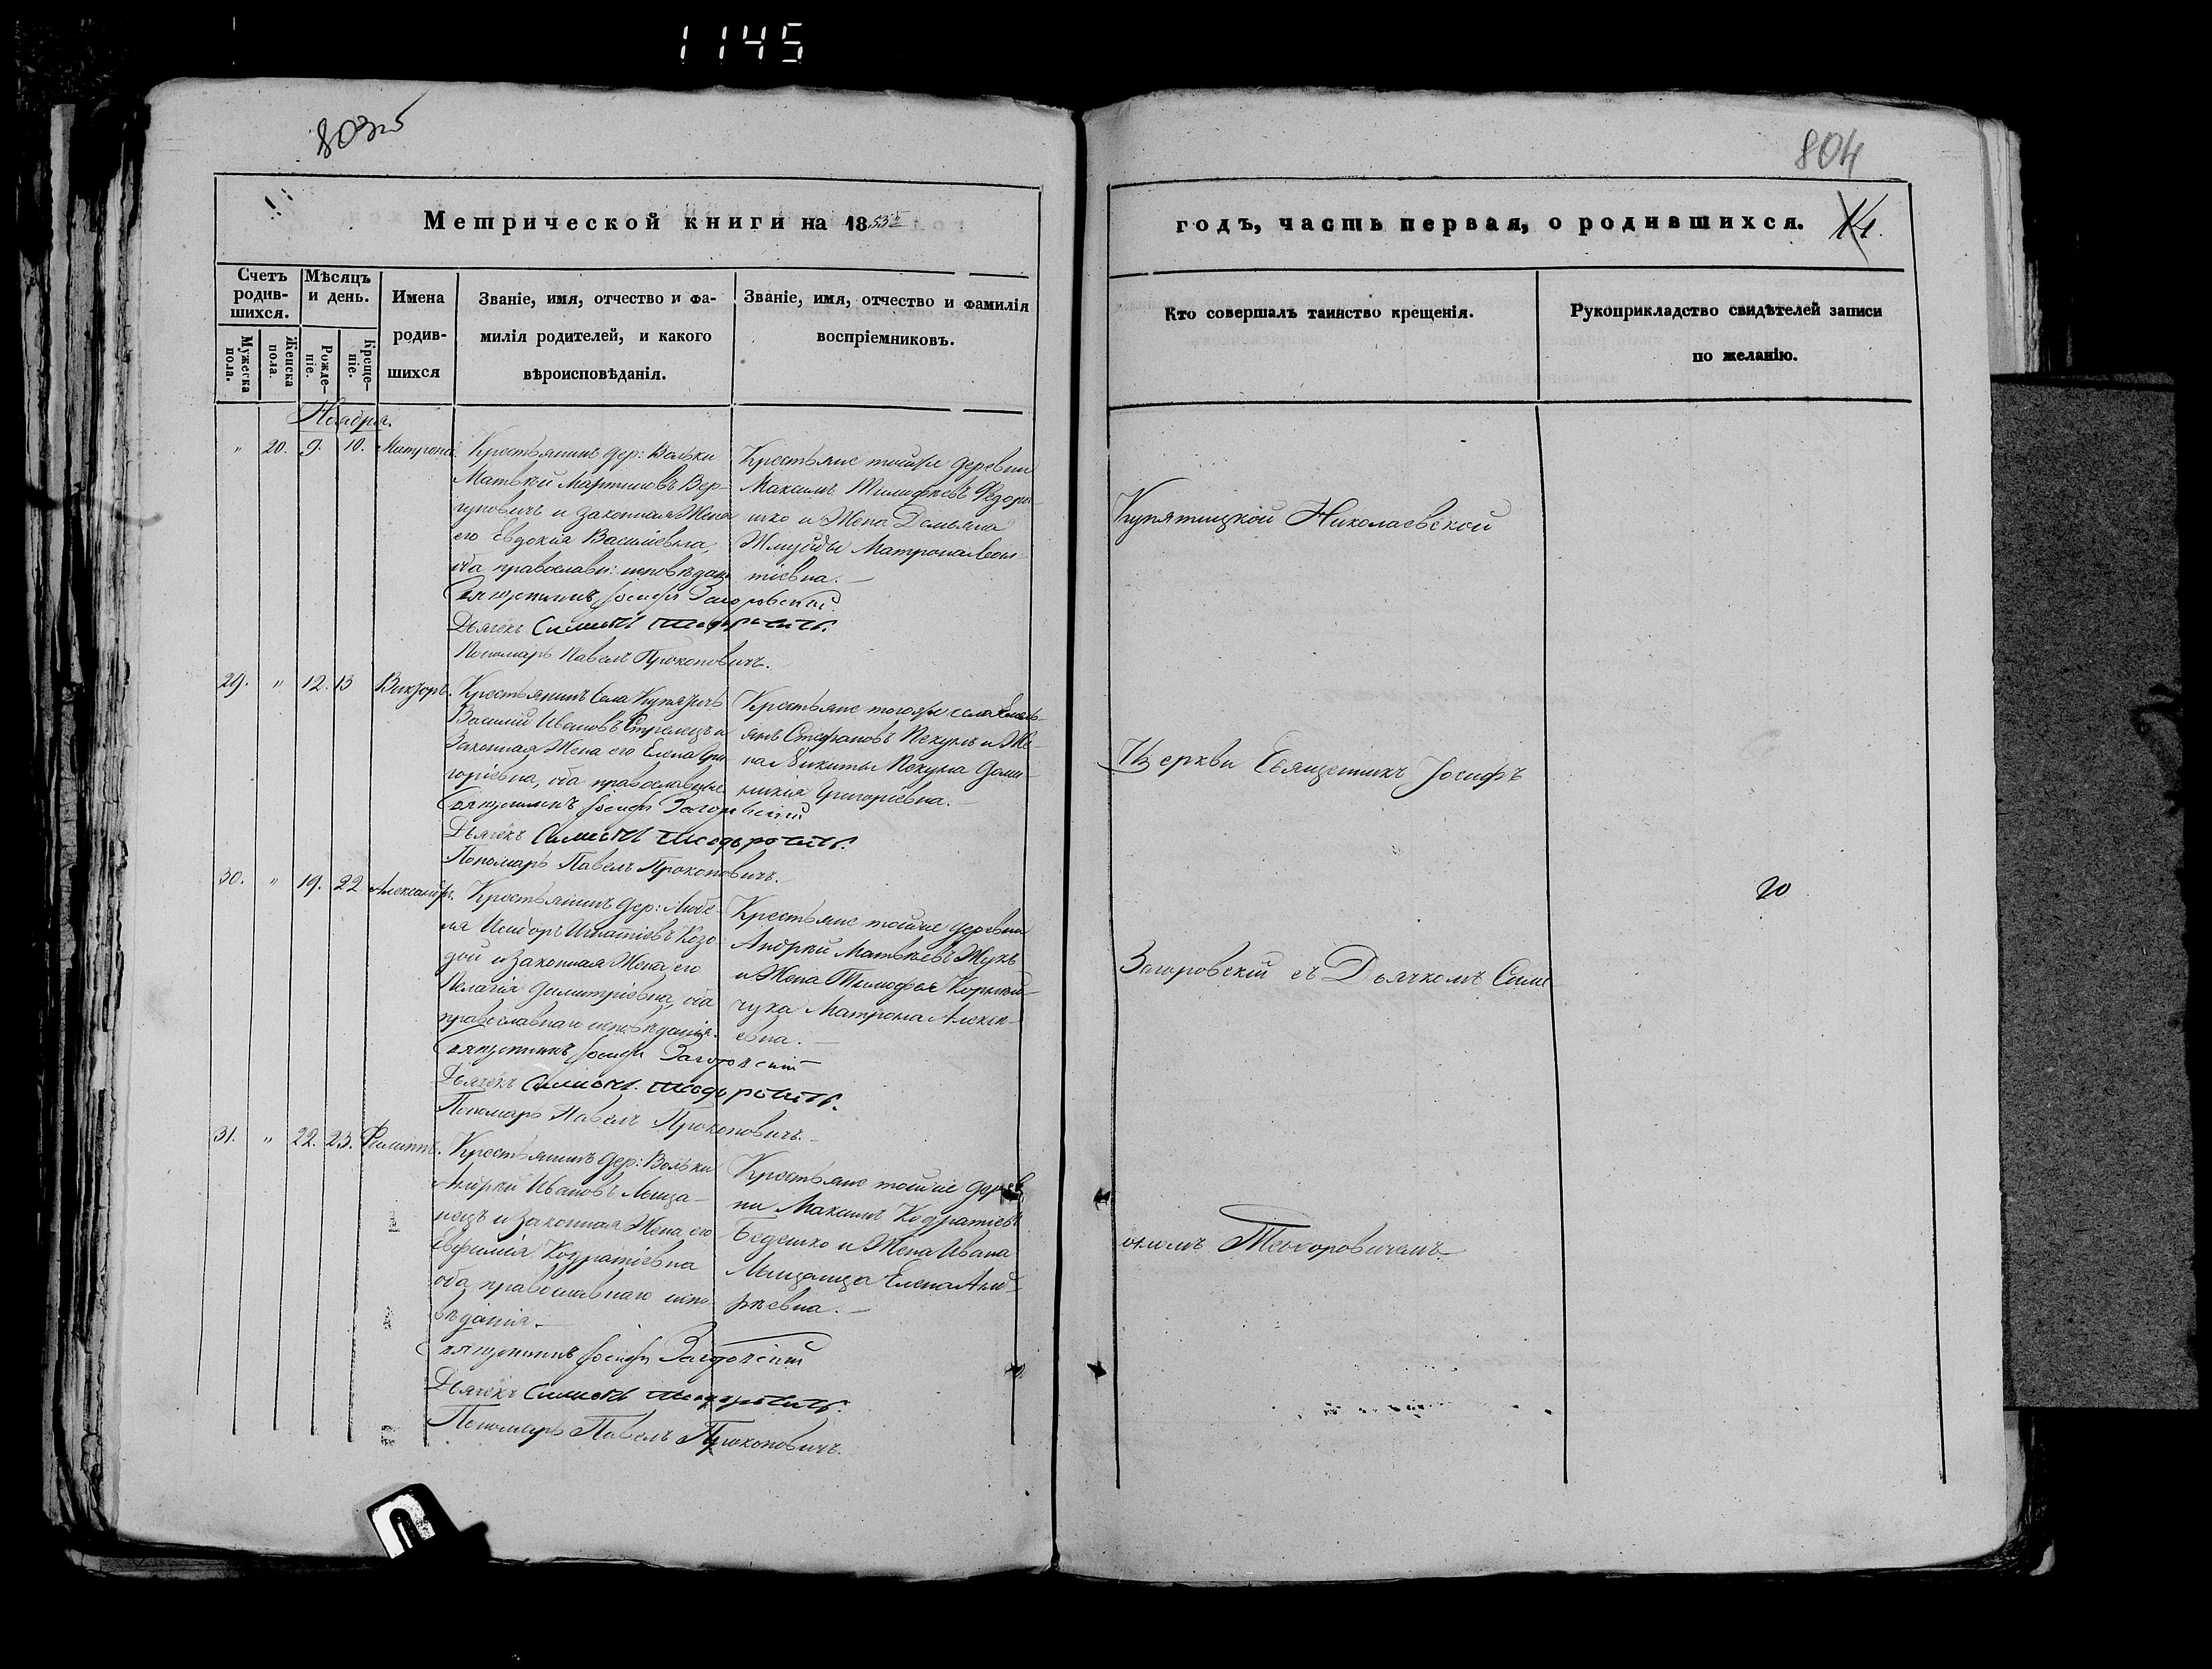 1145
803 об
804
Метрической книги на 1853й
годъ, часть первая, о родившихся. 14.
Счетъ родив-шихся.
Мужеска пола.
Женска пола.
Мѣсяцъ и день.
Рожде-ніе.
Креще-ніе.
Имена родив-шихся
Званіе, имя, отчество и фа-
милія родителей, и какого
вѣроисповѣданія.
Званіе, имя, отчество и фамилія
воспріемниковъ.
Кто совершалъ таинство крещенія.
Рукоприкладство свидѣтелей записи
по желанію.
Ноября.
" 20. 9. 10. Матрона.
Крестьянинъ дер: Вольки
Матвѣй Мартиновъ Вер-
гуновичъ и законная Жена
его Евдокія Василіевна,
оба православн: исповѣдан
Священникъ Іосифъ Загоровскій
Дьячекъ Симеонъ Теодоровичъ.
Пономарь Павелъ Прокоповичъ.
Крестьяне тойже деревни
Максимъ Тимофѣевъ Федоро-
шко и Жена Демьяна
Жмуйды Матрона Леон-
тіевна.
29. " 12. 13 Викторъ.
Крестьянинъ Села Купятичъ
Василій Ивановъ Стрелецъ и
Законная Жена его Елена Гри
горіевна, оба православные
Священникъ Іосифъ Загоровскій
Дьячекъ Симеонъ Теодоровичъ.
Пономарь Павелъ Прокоповичъ.
Крестьяне тогоже села Емель-
янъ Стефановъ Пекунъ и Же-
на Никиты Пекуна Доми-
никія Григоріевна.
30. " 19. 22 Александръ.
Крестьянинъ дер: Любе-
ля Исидоръ Игнатіевъ Козо-
дой и законная Жена его
Пелагія Димитріевна, оба
православнаго исповѣданія.
Священникъ Іосифъ Загоровскій
Дьячекъ Симеонъ Теодоровичъ.
Пономарь Павелъ Прокоповичъ.
Крестьяне тойже деревни
Андрей Матвѣевъ Жукъ
и Жена Тимофея Корней-
чука Матрона Алексѣ-
евна.
31. " 22. 23. Филиппъ.
Крестьянинъ дер: Вольки
Андрей Ивановъ Мыща-
нецъ и законная Жена его
Евфимія Кодратіевна
оба православнаго испо-
вѣданія.
Священникъ Іосифъ Загоровскій
Дьячекъ Симеонъ Теодоровичъ.
Пономарь Павелъ Прокоповичъ.
Крестьяне тойже дерев
ни Максимъ Кодратіевъ
Бедешко и Жена Ивана
Мыщанца Елена Анд-
рѣевна.
Купятицкой Николаевской
Церкви Священникъ Іосифъ
Загоровскій съ Дьячкомъ Симе
ономъ Теодоровичемъ.
20